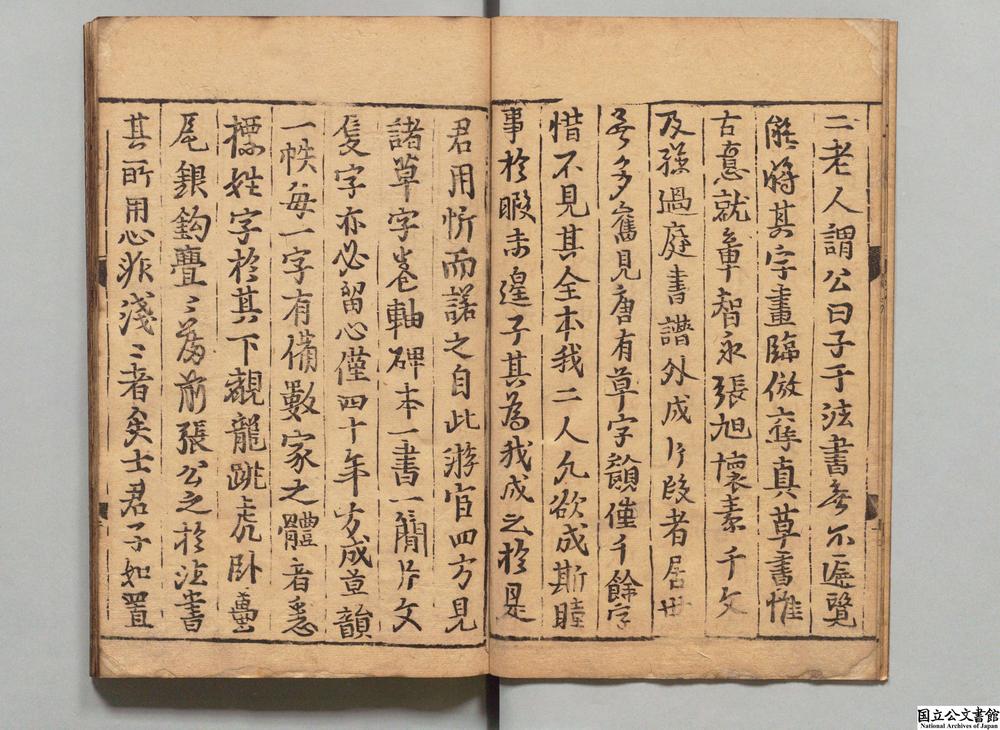 二老人謂公曰子于法書無不遍覽
能將其字畫臨倣奪真草書惟
古意就章智永張旭懷素千文
及孫過庭書譜外成片段者居世
無多舊見唐有草字韻僅千餘字
惜不見其全本我二人久欲成斯
事於暇未遑子其為我成之於是
君用忻而諾之自此游官四方見
諸草字卷軸碑本一書一簡片文
隻字亦必留心僅四十年方成草韻
一帙每一字有備數家之體音悉
標姓字於其下覩龍跳虎卧蠆
尾銀鈎亹〻為前張公之於法書
其所用心非淺〻者矣士君子如置
国立公文書館
National Archives of Japan